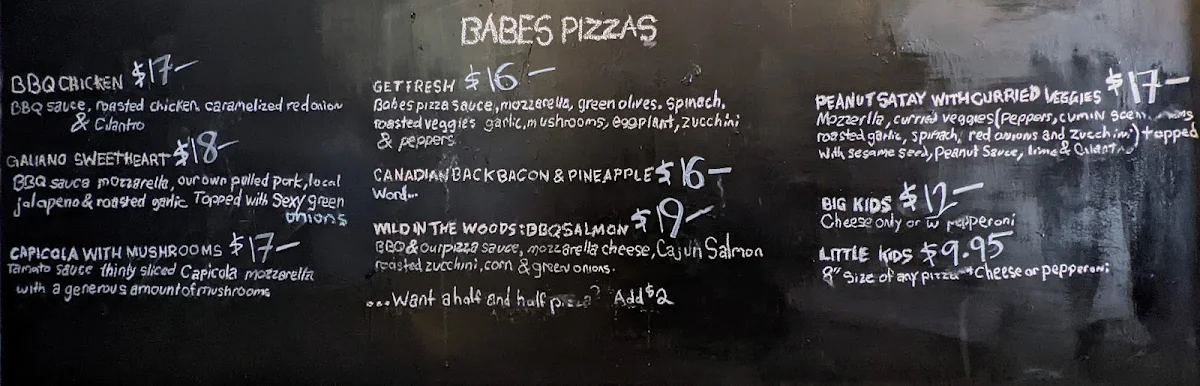 BABES PIZZAS
BBQ CHICKEN $17-
BBQ sauce, roasted chicken, caramelized red onion
& Cilantro
GALIANO SWEETHEART $18-
BBQ sauce mozzarella, our own pulled pork, local
jalapeno & roasted garlic Topped with Sexy green
onions
CAPICOLA WITH MUSHROOMS $17-
Tamato sauce thinly sliced Capicola mozzarella
with a generous amount of mushrooms
GET FRESH $16-
Babes pizza sauce, mozzarella, green olives. Spinach.
roasted veggies garlic, mushrooms, eggplant, zucchini
& peppers
CANADIAN BACK BACON & PINEAPPLE $16-
Word...
WILD IN THE WOODS: BBQ SALMON $19-
BBQ & our pizza sauce, mozzarella cheese, Cajun Salmon
roasted zucchini, corn & green onions.
...Want a half and half pizza? Add $2
PEANUT SATAY WITH CURRIED VEGGIES $17-
Mozzerlla, curried veggies (peppers, cumin
roasted garlic, spinach, red onions and zucchini) topped
with sesame seed, Peanut Sauce, lime & Cilantro
BIG KIDS $12-
Cheese only or w pepperoni
LITTLE KIDS $9.95
8" Size of any pizza *Cheese or pepperoni